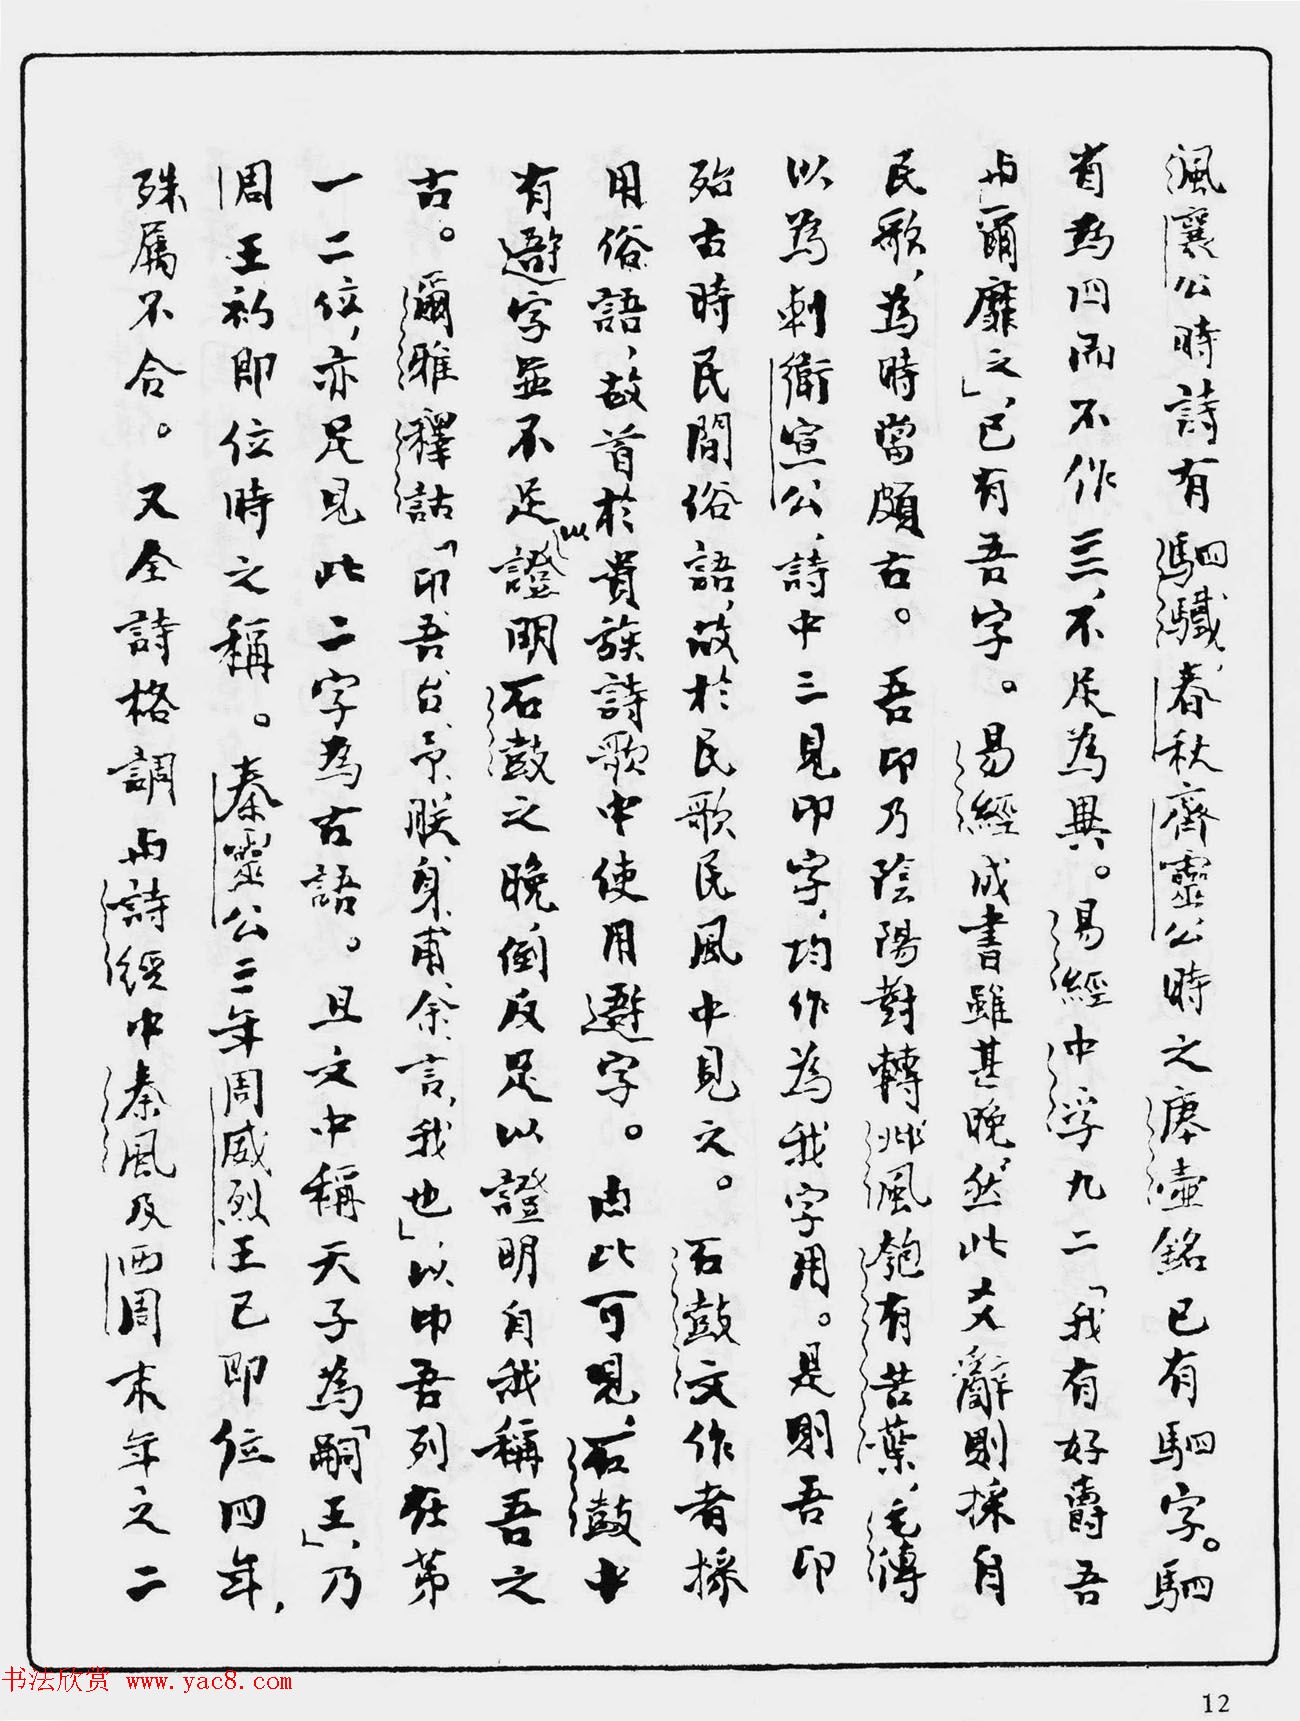 渢襄公時詩有駟驖，春秋齊靈公時之庚壺銘已有駟字。駟
省為四而不作亖，不足為異。易經中孚九二「我有好爵吾
與爾靡之」，已有吾字。易經成書雖甚晚，然此爻辭則採自
民歌，為時當頗古。吾卬乃陰陽對轉，邶風匏有苦葉，毛傳
以為刺衛宣公，詩中三見卬字，均作為我字用。是則吾卬
殆古時民間俗語，故於民歌民風中見之。石鼓文作者採
用俗語，故首於貴族詩歌中使用避字。由此可見，石鼓中
有避字並不足以證明石鼓之晚，倒反足以證明自我稱吾之
古。爾雅釋詁「卬、吾、台、予、朕、身、甫、余、言，我也」，以卬吾列在第
一二位，亦足見此二字為古語。且文中稱天子為「嗣王」，乃
周王初即位時之稱。秦靈公三年周威烈王已即位四年，
殊屬不合。又全詩格調與詩經中秦風及西周末年之二
书法欣赏 www.yac8.com
12